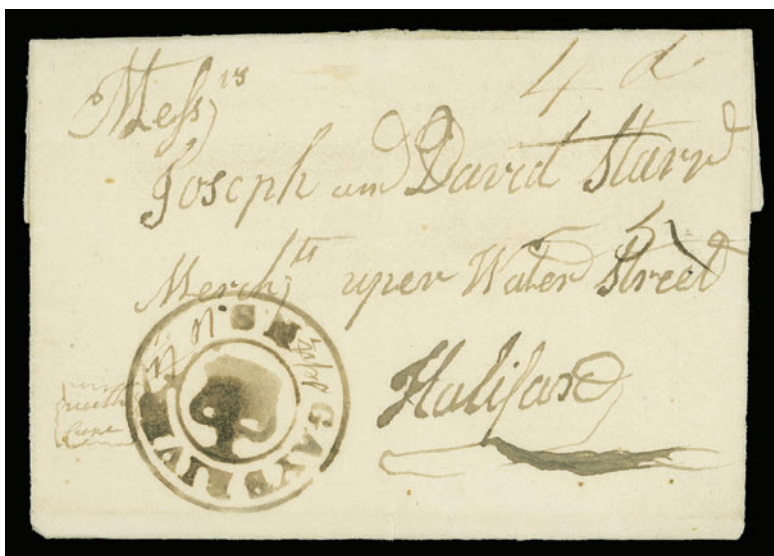 4 d
Mess,rs
Joseph and David Starr
Merch,ts uper Water Street
Halifax
with
GAY'S RIVER N.S.